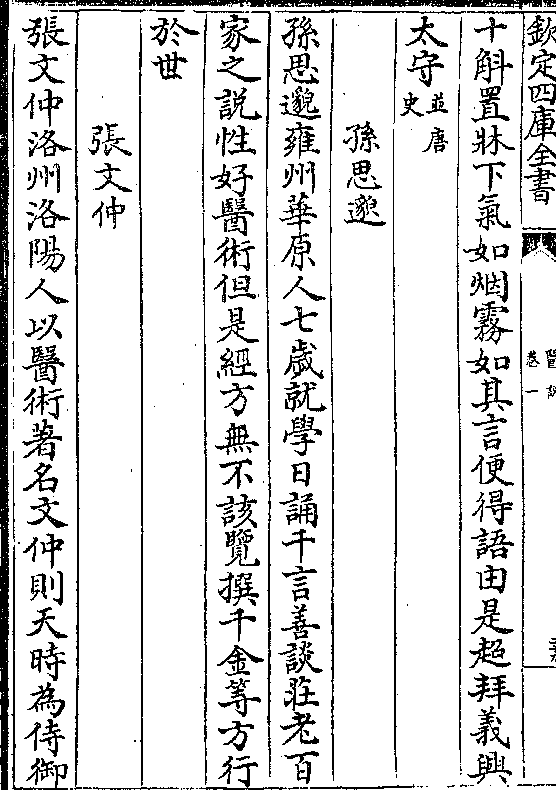 欽定四庫全書
醫說
卷一
十斛置牀下氣如烟霧如其言便得語由是超拜義興
太守並唐史
孫思邈
孫思邈雍州華原人七歳就學日誦千言善談莊老百
家之說性好醫術但是經方無不該覽撰千金等方行
於世
張文仲
張文仲洛州洛陽人以醫術著名文仲則天時為侍御